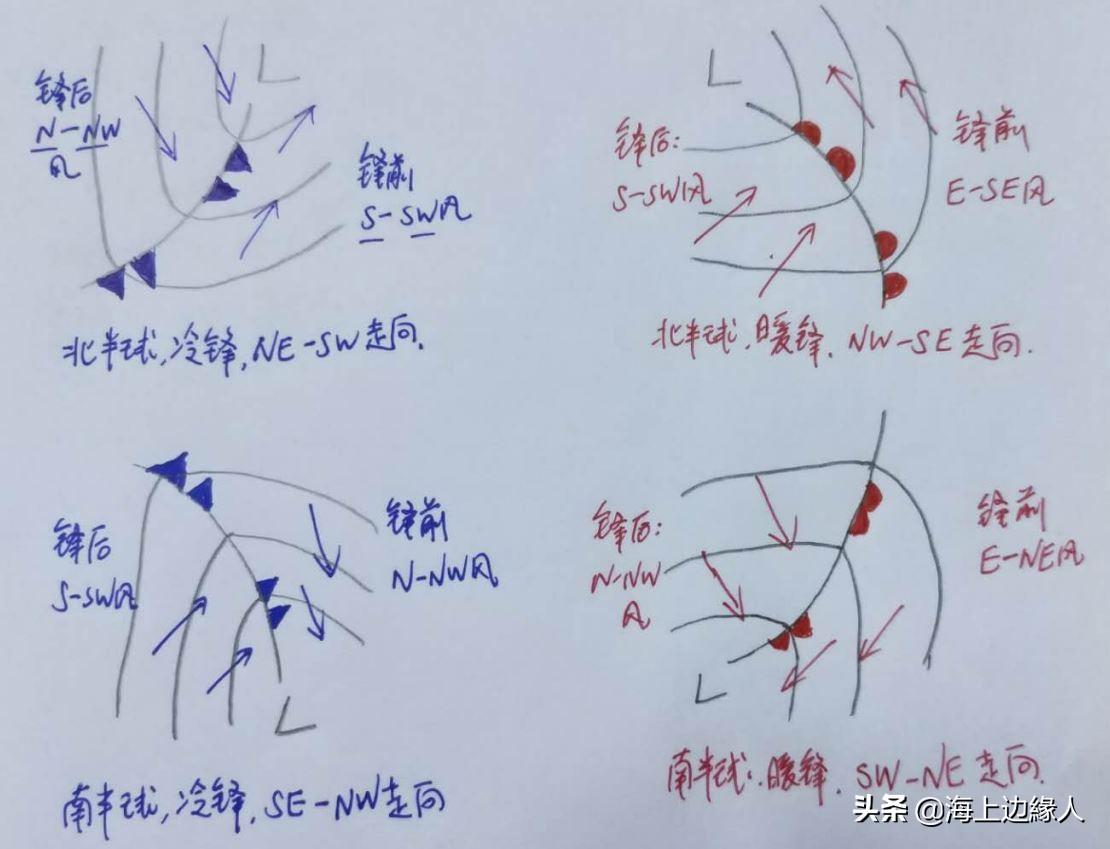 L
锋后
N-NW
风
锋前
S-SW风
北半球,冷锋,NE-SW走向.
L
锋后:
S-SW风
锋前
E-SE风
北半球,暖锋.NW-SE走向.
锋后
S-SW风
锋前
N-NW风
L
南半球,冷锋,SE-NW走向
锋后:
N-NW
风
锋前
E-NE风
L
南半球:.暖锋.SW-NE走向.
头条 @海上边缘人